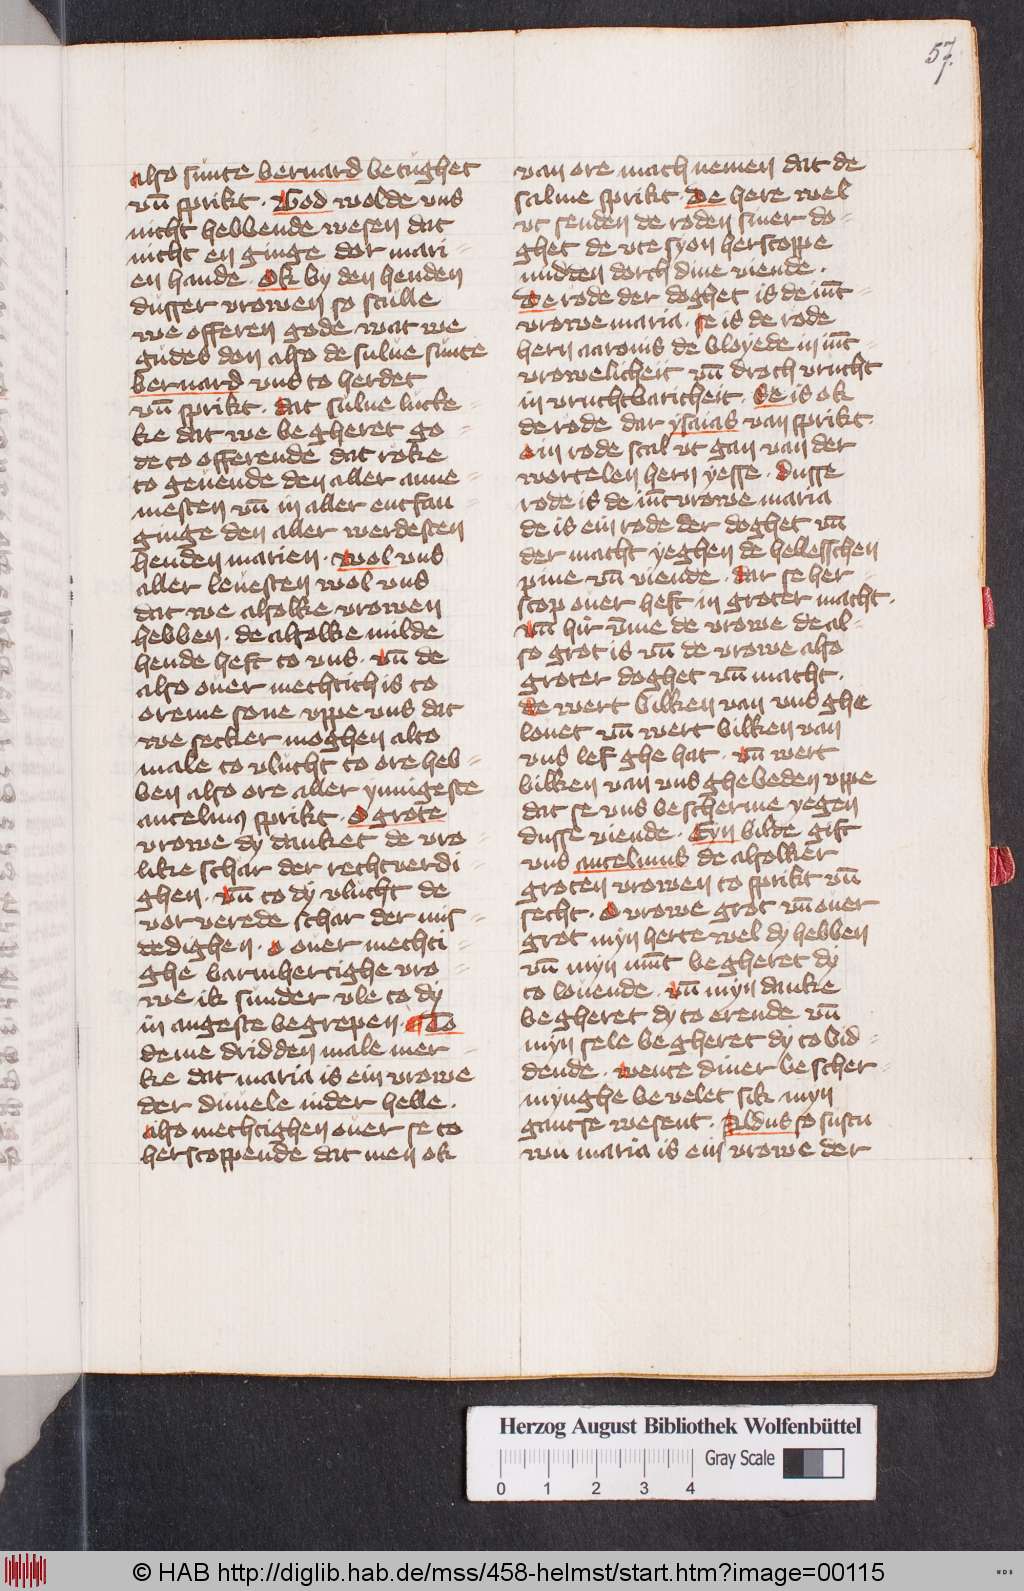 57.
also sunte bernard betughet
vn̄ sprikt · God wolde vns
nicht hebbende wesen dat
nicht en ginge dor mari-
en hande · Ok by den henden
dusser vrowen so sculle
we offeren gode wat we
gudes don also de sulue sunte
bernard vns to herdet
vn̄ sprikt · dat sulue lucke-
ke dat we begheret go-
de to offerende dat roke
to geuende den aller anne-
mesten vn̄ in aller entfan-
ginge den aller werdesten
henden marien · Wol vns
aller leuesten wol vns
dat we alsolke vrowen
hebben · de alsolke milde
hende heft to vns · vn̄ de
also ouer mechtich is to
oreme sone vppe vns dat
we secker moghen alto
male to vlucht to ore heb-
ben also ore aller ynnigeste
ancelmus sprikt · O grote
vrowe dy danket de vro-
like schar der rechtverdi-
ghen · vn̄ to dy vlucht de
vorverede schar der mis-
dedighen · o ouer mechti-
ghe barmhertighe vro-
we ik sunder vle to dy
in angeste begrepen · To
deme dridden male mer-
ke dat maria is ein vrowe
der duuele in der helle ·
also mechtighen ouer se to
herscoppende dat men ok
van ore mach nemen dat de
salme sprikt · De here wel
vt senden de roden siner do-
ghet de vte syon herscoppe
midden dorch dine viende ·
De rode der doghet is de iūc-
vrowe maria · se is de rode
hern aarons de bloyede in iūc-
vrowelicheit vn̄ droch vrucht
in vruchtbaricheit · Se is ok
de rode dar ysaias van sprikt ·
ein rode scal vt gan van der
wortelen hern yesse · Dusse
rode is de iūcvrowe maria
de is ein rode der doghet vn̄
der macht yeghen de hellesschen
pine vn̄ viende · dar se her-
scop ouer heft in groter macht ·
vn̄ hir v̄me de vrowe de al-
so grot is vn̄ de vrowe also
groter doghet vn̄ macht ·
de wert bilken van vns ghe
louet vn̄ wert bilken van
vns lef ghe hat · vn̄ wert
bilken van vns ghebeden vppe
dat se vns bescherme yegen
dusse viende · Eyn bilde gift
vns ancelmus de alsolker
groten vrowen to sprikt vn̄
secht · O vrowe grot vn̄ ouer
grot myn herte wel dy hebben
vn̄ myn mūt begheret dy
to louende · vn̄ myn danke
begheret dy to erende vn̄
myn sele begheret dy to bid-
dende · wente diner bescher-
mynghe beuelet sik myn
gantse wesent · Aldus so sustu
wu maria is ein vrowe der
Herzog August Bibliothek Wolfenbüttel
Gray Scale
0 1 2 3 4
© HAB http://diglib.hab.de/mss/458-helmst/start.htm?image=00115